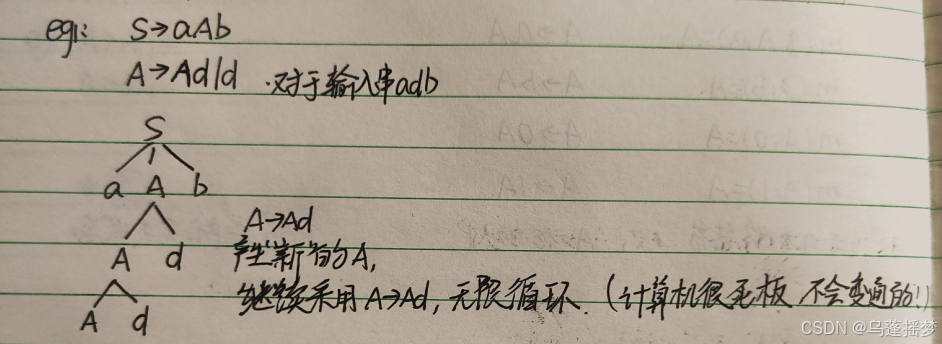 eg1: S→aAb
A→Ad|d .对于输入串adb
S
a A b
A→Ad
A d 产生新的A,
继续采用A→Ad, 无限循环. (计算机很死板 不会变通的!)
A d
CSDN @乌蓬摇梦